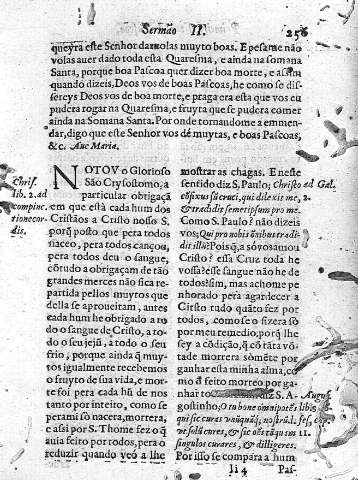 Sermão II. 256
queyra este Senhor darnolas muyto boas. E pesame não
volas auer dado toda esta Quaresma, e ainda na somana
Santa, porque boa Pascoa quer dizer boa morte, e assim
quando dizeis, Deos vos de boas Pascoas, he como se dis-
sereys Deos vos de boa morte, e praga era esta que vos eu
pudera rogar na Quaresma, e fruyta que se pudera comer
ainda na Somana Santa. Por onde tornandome a emmen-
dar, digo que este Senhor vos dé muytas, e boas Pascoas,
&c. Aue Maria.
Chris.
lib. 2. ad
compunc.
tione cor-
dis.
NOTOV o Glorioso
São Crysostomo, a
particular obrigaçã
em que està cada hum dos
Cristãos a Cristo nosso S.
porq̃ posto que pera todos
naceo, pera todos cançou,
pera todos deu o sangue,
cõtudo a obrigaçam de tão
grandes merces não fica re-
partida pellos muytos que
della se aproueitam, antes
cada hum he obrigado a to
do o sangue de Cristo, a to-
do o seu jejũ, a todo o seu
frio, porque ainda q̃ muy-
tos igualmente recebemos
o fruyto de sua vida, e mor-
te foi pera cada hũ de nos
tanto por inteiro, como se
pera mi só nacera, morrera,
e assi por S. Thome fez o q̃
auia feito por todos, pera o
reduzir quando veò a lhe
mostrar as chagas. E neste
sentido diz S. Paulo; Christo
cõfixus sũ cruci, qui dilexit me,
& tradidit semetipsum pro me.
Como S. Paulo? não dizeis
vos; Qui pro nobis õnibus tradi-
dit illũ? Pois q̃, a sò vos amou
Cristo? essa Cruz toda he
vossa? esse sangue não he de
todos? sim, mas achome pe
nhorado pera agardecer a
Cirsto tudo quãto fez por
todos, como se o fizera só
por meu remedio, porq̃ lhe
sey a cõdição, q̃ cõ tãta võ-
tade morrera sòmēte por
ganhar esta minha alma, co
mo d feito morreo por ga-
nhar diz S. A-
gostinho; O tu bone omnipotēs
qui sic curas vnũquẽq̃,
ve solũ cures, & sic oẽs tãquam
singulos curares, & diligeres.
Por isso se compara a hum
ad Gal.
2.
Augus.
libr.
cap.
11.
Ii 4 Pas-